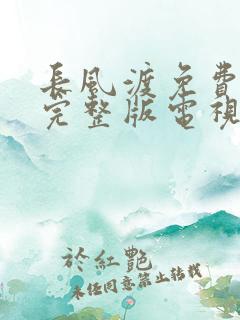 長風渡免費
完整版電視
於紅艷
未經同意禁止轉載